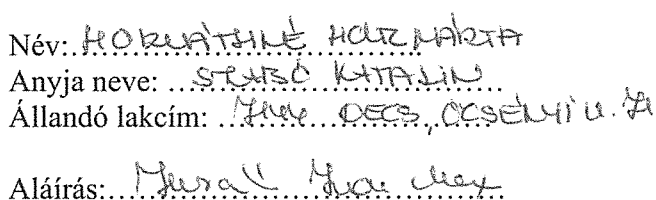 Név: HORVÁTHNÉ HOLCZ MÁRTA
Anyja neve: SZABÓ KATALIN
Állandó lakcím: DECS, ŐCSÉNYI U.
Aláírás: